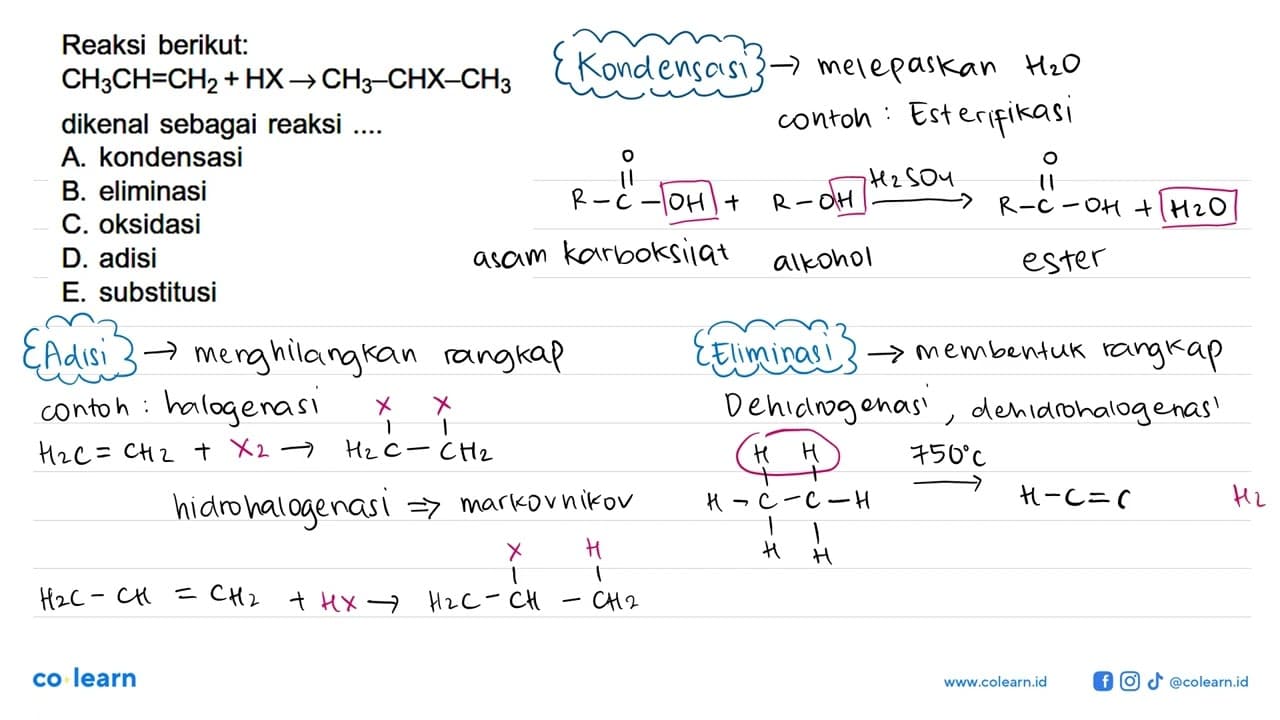 Reaksi berikut:
CH₃CH=CH₂ + HX → CH₃–CHX–CH₃
dikenal sebagai reaksi ....
A. kondensasi
B. eliminasi
C. oksidasi
D. adisi
E. substitusi
Kondensasi → melepaskan H₂O
contoh : Esterifikasi
O O
|| ||
R – C – OH + R – OH H₂SO₄ → R – C – OH + H₂O
asam karboksilat alkohol ester
Adisi → menghilangkan rangkap
contoh : halogenasi
X X
| |
H₂C = CH₂ + X₂ → H₂C – CH₂
hidrohalogenasi ⇒ markovnikov
X H
| |
H₂C – CH = CH₂ + HX → H₂C – CH – CH₂
Eliminasi → membentuk rangkap
Dehidrogenasi , dehidrohalogenasi
H H 750°C
| |
H – C – C – H → H – C = C H₂
| |
H H
co learn
www.colearn.id
@colearn.id